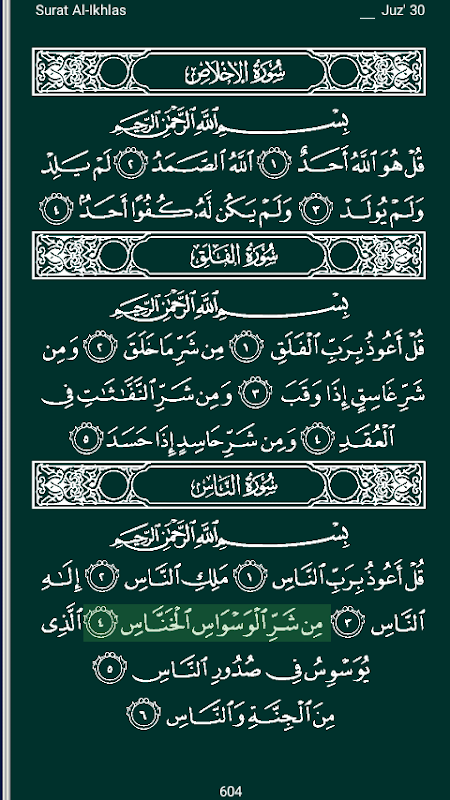 Surat Al-Ikhlas
__ Juz' 30
سُورَةُ الإِخْلَاصِ
بِسْمِ اللَّهِ الرَّحْمَٰنِ الرَّحِيمِ
قُلْ هُوَ اللَّهُ أَحَدٌ ١ اللَّهُ الصَّمَدُ ٢ لَمْ يَلِدْ
وَلَمْ يُولَدْ ٣ وَلَمْ يَكُن لَّهُۥ كُفُوًا أَحَدٌۢ ٤
سُورَةُ الفَلَقِ
بِسْمِ اللَّهِ الرَّحْمَٰنِ الرَّحِيمِ
قُلْ أَعُوذُ بِرَبِّ الْفَلَقِ ١ مِن شَرِّ مَا خَلَقَ ٢ وَمِن
شَرِّ غَاسِقٍ إِذَا وَقَبَ ٣ وَمِن شَرِّ النَّفَّٰثَٰتِ فِى
الْعُقَدِ ٤ وَمِن شَرِّ حَاسِدٍ إِذَا حَسَدَ ٥
سُورَةُ النَّاسِ
بِسْمِ اللَّهِ الرَّحْمَٰنِ الرَّحِيمِ
قُلْ أَعُوذُ بِرَبِّ النَّاسِ ١ مَلِكِ النَّاسِ ٢ إِلَٰهِ
النَّاسِ ٣ مِن شَرِّ الْوَسْوَاسِ الْخَنَّاسِ ٤ الَّذِى
يُوَسْوِسُ فِى صُدُورِ النَّاسِ ٥
مِنَ الْجِنَّةِ وَالنَّاسِ ٦
604